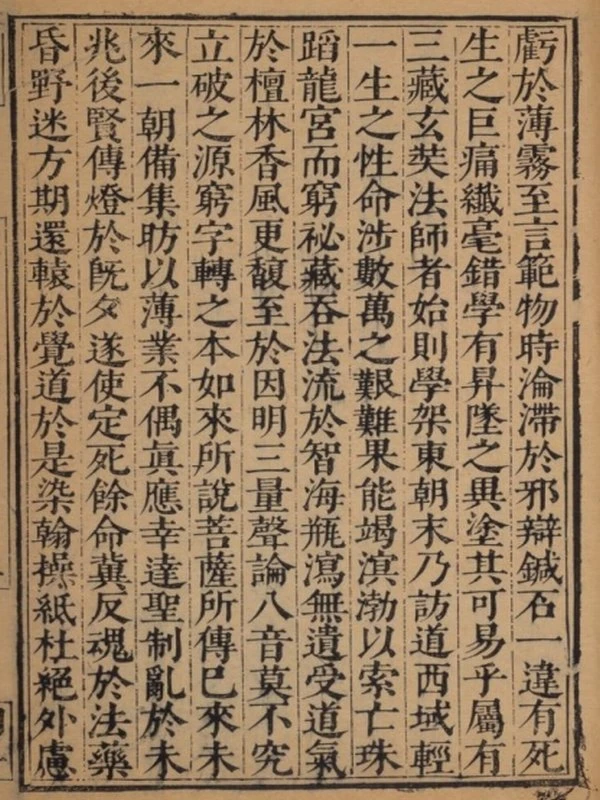 虧於薄霧至言範物時淪滯於邪辯鍼石一違有死
生之巨痛纎毫錯學有昇墜之異塗其可易乎屬有
三藏玄奘法師者始則學架東朝末乃訪道西域輕
一生之性命涉數萬之艱難果能竭溟渤以索亡珠
蹈龍宮而窮祕藏吞法流於智海瓶瀉無遺受道氣
於檀林香風更馥至於因明三量聲論八音莫不究
立破之源窮字轉之本如來所說菩薩所傳已來未
來一朝備集昉以薄業不偶眞應幸達聖制亂於未
兆後賢傳燈於旣夕遂使定死餘命冀反魂於法藥
昏野迷方期還轅於覺道於是染翰操紙杜絕外慮